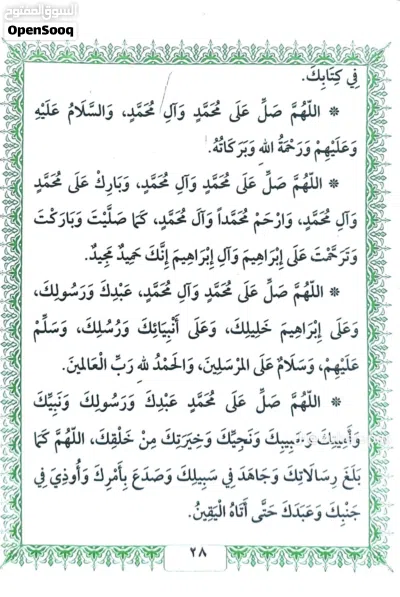 السوق المفتوح
OpenSooq
فِي كِتَابِكَ.
* اللّهُمَّ صَلِّ عَلَى مُحَمَّدٍ وَآلِ مُحَمَّدٍ، وَالسَّلَامُ عَلَيْهِ
وَعَلَيْهِمْ وَرَحْمَةُ اللهِ وَبَرَكَاتُهُ.
* اللّهُمَّ صَلِّ عَلَى مُحَمَّدٍ وَآلِ مُحَمَّدٍ، وَبَارِكْ عَلَى مُحَمَّدٍ
وَآلِ مُحَمَّدٍ، وَارْحَمْ مُحَمَّداً وَآلَ مُحَمَّدٍ، كَمَا صَلَّيْتَ وَبَارَكْتَ
وَتَرَحَّمْتَ عَلَى إِبْرَاهِيمَ وَآلِ إِبْرَاهِيمَ إِنَّكَ حَمِيدٌ مَجِيدٌ.
* اللّهُمَّ صَلِّ عَلَى مُحَمَّدٍ وَآلِ مُحَمَّدٍ، عَبْدِكَ وَرَسُولِكَ،
وَعَلَى إِبْرَاهِيمَ خَلِيلِكَ، وَعَلَى أَنْبِيَائِكَ وَرُسُلِكَ، وَسَلِّمْ
عَلَيْهِمْ، وَسَلَامٌ عَلَى المُرْسَلِينَ، وَالحَمْدُ للهِ رَبِّ العَالَمِينَ.
* اللّهُمَّ صَلِّ عَلَى مُحَمَّدٍ عَبْدِكَ وَرَسُولِكَ وَنَبِيِّكَ
وَأَمِينِكَ وَحَبِيبِكَ وَنَجِيِّكَ وَخِيَرَتِكَ مِنْ خَلْقِكَ، اللّهُمَّ كَمَا
بَلَّغَ رِسَالَاتِكَ وَجَاهَدَ فِي سَبِيلِكَ وَصَدَعَ بِأَمْرِكَ وَأُوذِيَ فِي
جَنْبِكَ وَعَبَدَكَ حَتَّى أَتَاهُ الْيَقِينُ.
٢٨